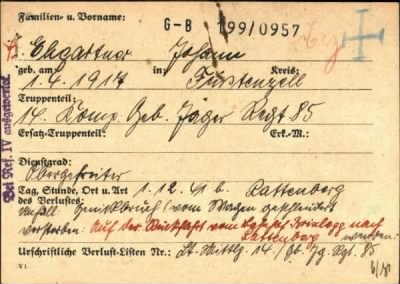 Familien- u. Vorname:
G-B 199/0957
Ehgartner Johann
geb. am: in: Kreis:
1.4.1917 Fürstenzell
Truppenteil:
14. Komp. Geb. Jäger Regt 85
Ersatz-Truppenteil: Erk.-M.:
Dienstgrad:
Obergefreiter
Tag, Stunde, Ort u. Art 1.12.41 b. Rattenberg
des Verlustes:
Unfall: Genickbruch (vom Wagen geschleudert
verstorben: Auf der Rückfahrt vom Brixlegg nach
Rattenberg
Urschriftliche Verlust-Listen Nr.: 14./Gb. Jg. Rgt. 85
VI.
Bei Ref. IV ausgewertet